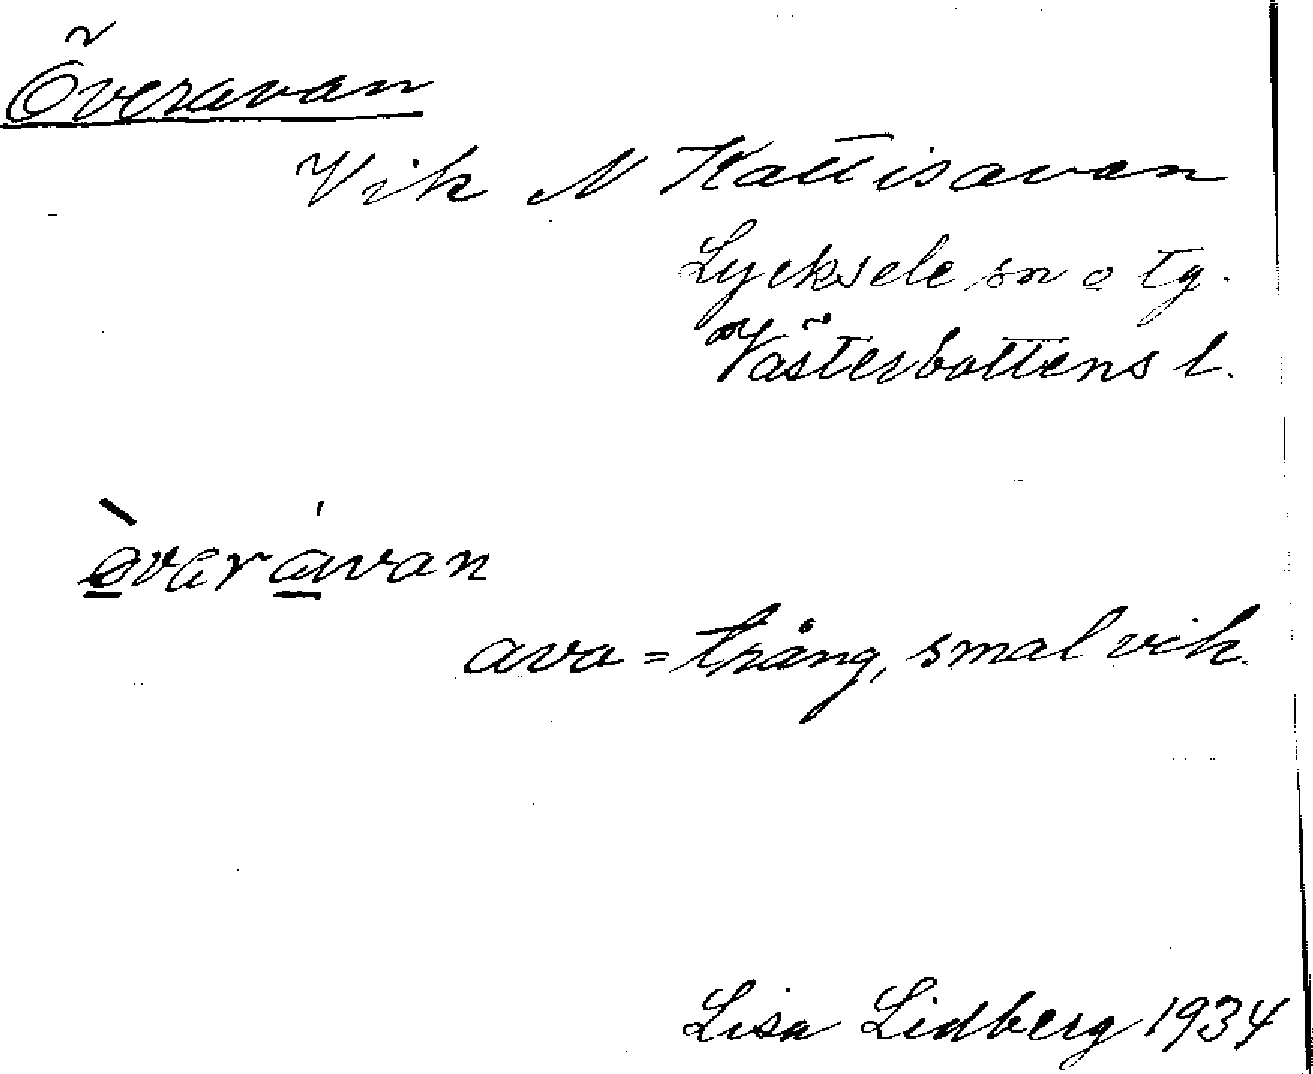 Överavan
Vik N Kattisavan
Lycksele sn o tg.
Västerbottens l.
òvarávan
ava = trång, smal vik.
Lisa Lidberg 1934